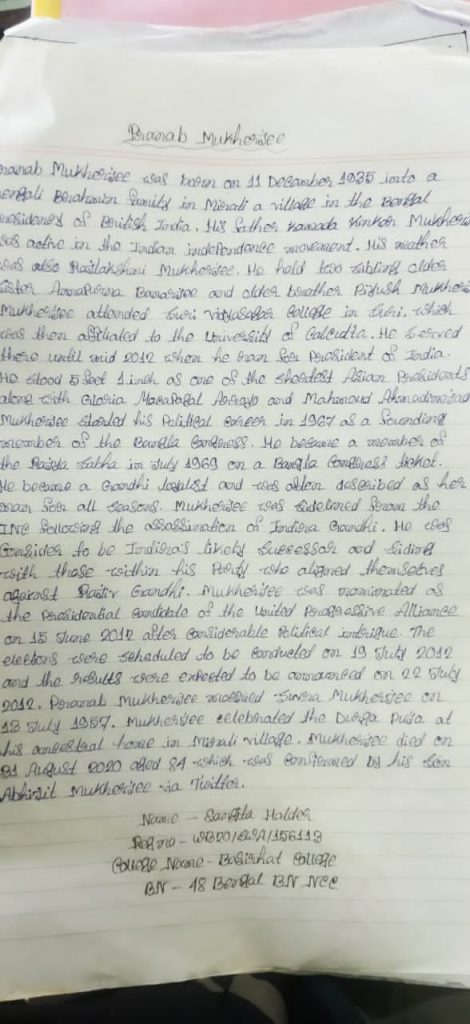 Pranab Mukherjee
Pranab Mukherjee was born on 11 December 1935 into a
Bengali Brahamin family in Mirati a village in the Bengal
Presidency of British India. His father Kamada Kinkar Mukherjee
was active in the Indian independance movement. His mother
was also Rajlakshmi Mukherjee. He held two sibling older
sister Annapurna Banarjee and older brother Pijush Mukherjee
Mukherjee attended Suri Vidyasagar College in Suri. which
was then affiliated to the University of Calcutta. He served
there until mid 2012 when he ran for President of India.
He stood 5 feet 1 inch as one of the shortest Asian Presidents
along with Gloria Macapagal Arroyo and Mahmoud Ahmadenejad
Mukherjee started his Political career in 1967 as a founding
member of the Bangla Congress. He became a member of
the Rajya Sabha in July 1969 on a Bangla Congress ticket.
He became a Gandhi loyalist and was often described as her
man for all seasons. Mukherjee was sidelined from the
INC following the assassination of Indira Gandhi. He was
Consider to be Indira's likely Successor and siding
with those within his Party who aligned themselves
against Rajiv Gandhi. Mukherjee was nominated as
the Presidential candidate of the United Progressive Alliance
on 15 June 2012 after considerable Political intrigue. The
elections were scheduled to be conducted on 19 July 2012
and the results were expected to be announced on 22 July
2012. Pranab Mukherjee married Suvra Mukherjee on
13 July 1957. Mukherjee celebrated the Durga Puja at
his ancestral home in Mirati village. Mukherjee died on
31 August 2020 aged 84 which was confirmed by his son
Abhijit Mukherjee via Twitter.
Name - Sangita Halder
Reg no - WB20/SWA/156113
College Name - Basirhat College
BN - 48 Bengal BN NCC